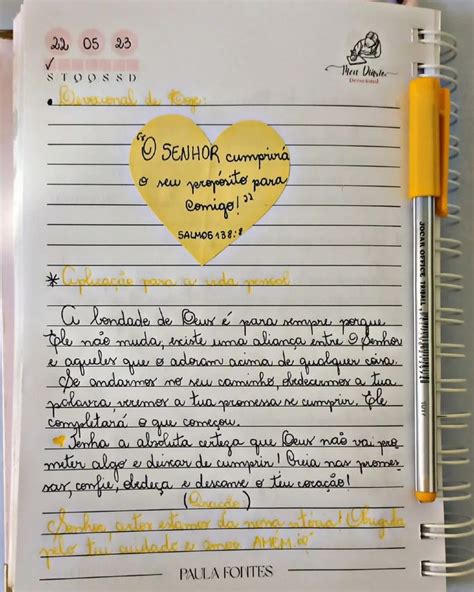 22 05 23
✓
S T Q Q S S D
Meu Diário
Devocional
• Devocional de Hoje:
"O SENHOR cumprirá
o seu propósito para
comigo!"
SALMOS 138:8
* Aplicação para a vida pessoal
A bondade de Deus é para sempre porque
Ele não muda, existe uma aliança entre O Senhor
e aqueles que o adoram acima de qualquer coisa.
Se andarmos no seu caminho, obedecermos a tua
palavra veremos a tua promessa se cumprir. Ele
completará o que começou.
Tenha a absoluta certeza que Deus não vai pro
meter algo e deixar de cumprir! Creia nas promes
sas, confie, obedeça e descanse o teu coração!
(Oração)
Senhor, estamos da nossa vitória! Obrigada
pelo teu cuidado e amor AMÉM
PAULA FONTES
JOCAR OFFICE